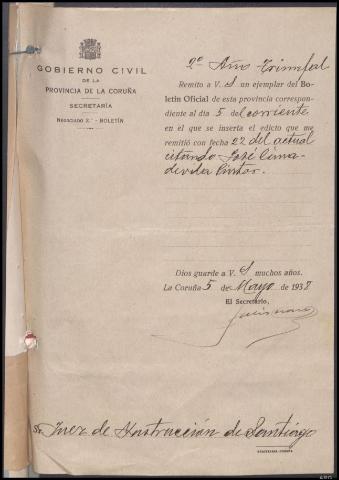 GOBIERNO CIVIL
DE LA
PROVINCIA DE LA CORUÑA
SECRETARÍA
NEGOCIADO 2.º - BOLETÍN
2º Año Triunfal
Remito a V. S un ejemplar del Bo-
letín Oficial de esta provincia correspon-
diente al día 5 del corriente
en el que se inserta el edicto que me
remitió con fecha 22 del actual
citando José Cima-
devila Pintor.
Dios guarde a V. S muchos años.
La Coruña 5 de Mayo de 1938
El Secretario,
Sr. Juez de Instrucción de Santiago